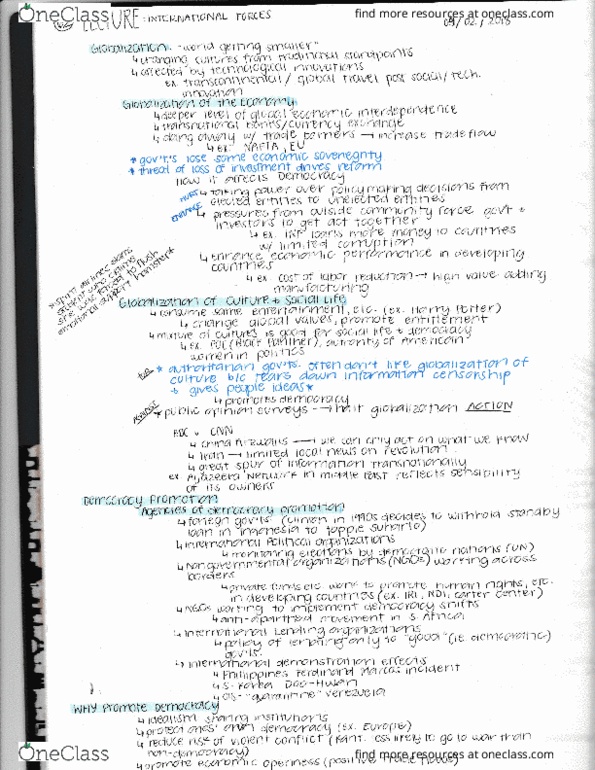 OneClass
find more resources at oneclass.com
LECTURE: INTERNATIONAL FORCES
04/02/2018
Globalization: "world getting smaller"
↳ changing cultures from traditional standpoints
↳ affected by technological innovations
ex. transcontinental / global travel post social/tech.
innovation
Globalization of the Economy
↳ deeper level of global economic interdependence
↳ transnational banks/currency exchange
↳ doing away w/ trade barriers → increase trade flow
↳ ex. NAFTA, EU
* gov't's lose some economic sovereignty
* threat of loss of investment drives reform
How it affects Democracy
HURT ↳ taking power over policymaking decisions from
elected entities to unelected entities
ENHANCE ↳ pressures from outside community force gov't +
investors to get act together
↳ ex. IMF loans more money to countries
w/ limited corruption
↳ enhance economic performance in developing
countries
↳ ex. cost of labor reduction → high value adding
manufacturing
Globalization of Culture + Social Life
↳ consume same entertainment, etc. (ex. Harry Potter)
↳ change global values, promote entitlement
↳ mixture of cultures is good for social life + democracy
↳ ex. (Black Panther), authority of American
women in politics
* authoritarian gov'ts. often don't like globalization of
culture b/c tears down information censorship
+ gives people ideas *
↳ promotes democracy
* public opinion surveys → globalization ACTION
BBC v. CNN
↳ China → we can only act on what we know
↳ Iran → limited local news on revolution
↳ great spur of information transnationally
ex. Aljazeera Network in Middle East reflects sensibility
of its owners
Democracy Promotion
Agencies of democracy promotion
↳ foreign gov'ts. (Clinton in 1990s decides to withhold standby
loan in Indonesia to topple Suharto)
↳ International Political Organizations
↳ monitoring elections by democratic nations (UN)
↳ Nongovernmental organizations (NGOs) working across
borders
↳ private funds etc. work to promote human rights, etc.
in developing countries (ex. IRI, NDI, Carter Center)
↳ NGOs working to implement democracy shifts
↳ anti-apartheid movement in S. Africa
↳ International Lending Organizations
↳ policy of lending only to "good" (i.e. democratic)
gov'ts.
↳ International demonstration effects
↳ Philippines Ferdinand Marcos incident
↳ S. Korea Doo-Hwan
↳ "quarantine" Venezuela
WHY Promote Democracy
↳ idealism sharing institutions
↳ protect ones' own democracy (ex. Europe)
↳ reduce rise of violent conflict (Kant: less likely to go to war than
non-democracy)
↳ promote economic openness
OneClass
find more resources at oneclass.com